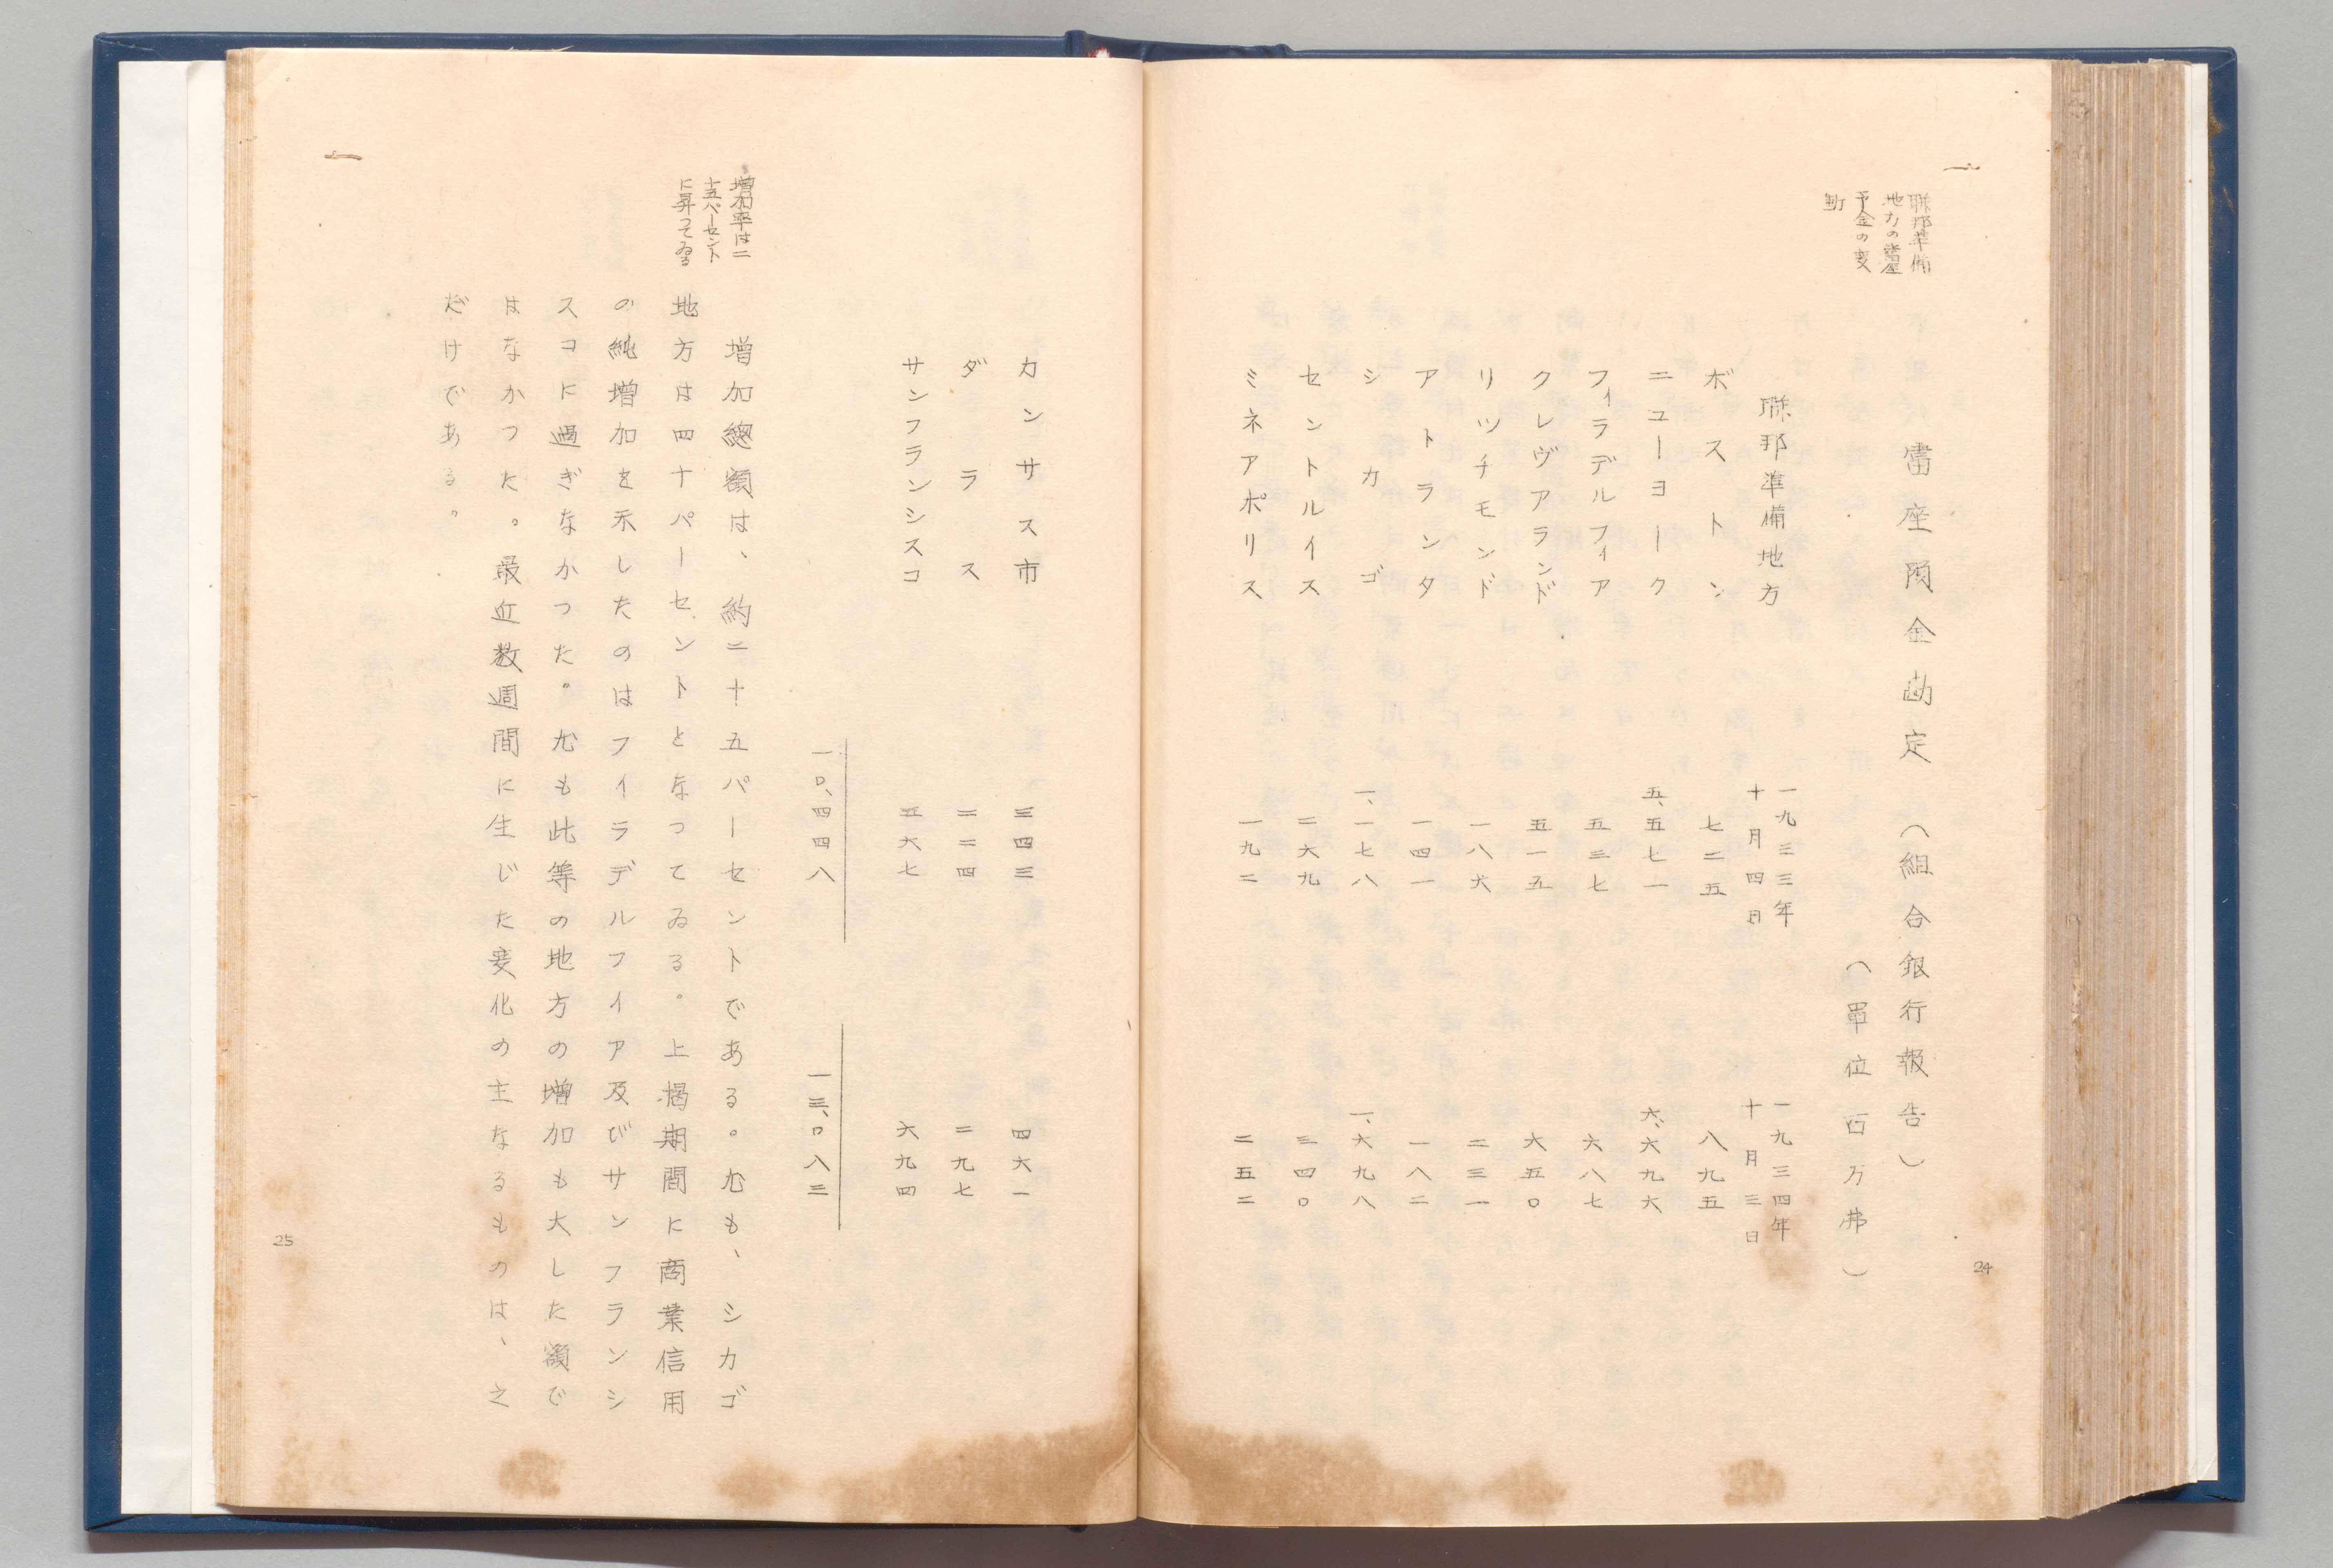 聯邦準備
地方の當座
予金の変
動
當座預金勘定(組合銀行報告)
(單位百万弗)
聯邦準備地方 一九三三年 十月四日 一九三四年 十月三日
ボストン 七二五 八九五
ニユーヨーク 五、五七一 六、六九六
フィラデルフィア 五三七 六八七
クレヴアランド 五一五 六五〇
リツチモンド 一八六 二三一
アトランタ 一四一 一八二
シカゴ 一、一七八 一、六九八
セントルイス 二六九 三四〇
ミネアポリス 一九二 二五二
24
カンサス市 三四三 四六一
ダラス 二二四 二九七
サンフランシスコ 五六七 六九四
一〇、四四八 一三、〇八三
増加率は二
十五パーセント
に昇つてゐる
増加總額は、約二十五パーセントである。尤も、シカゴ
地方は四十パーセントとなつてゐる。上揭期間に商業信用
の純増加を示したのはフイラデルフイア及びサンフランシ
スコに過ぎなかつた。尤も此等の地方の増加も大した額で
はなかつた。最近数週間に生じた変化の主なるものは、之
だけである。
25